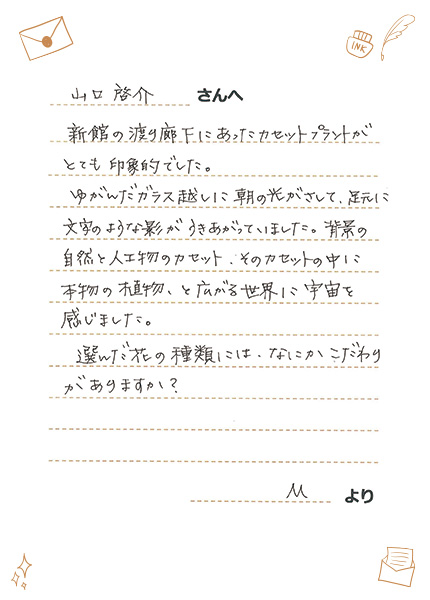 INK
山口 啓介 さんへ
新館の渡り廊下にあったカセットプラントが
とても印象的でした。
ゆがんだガラス越しに朝の光がさして、足元に
文字のような影がうきあがっていました。背景の
自然と人工物のカセット、そのカセットの中に
本物の植物、と広がる世界に宇宙を
感じました。
選んだ花の種類には、なにかこだわり
がありますか？
M より